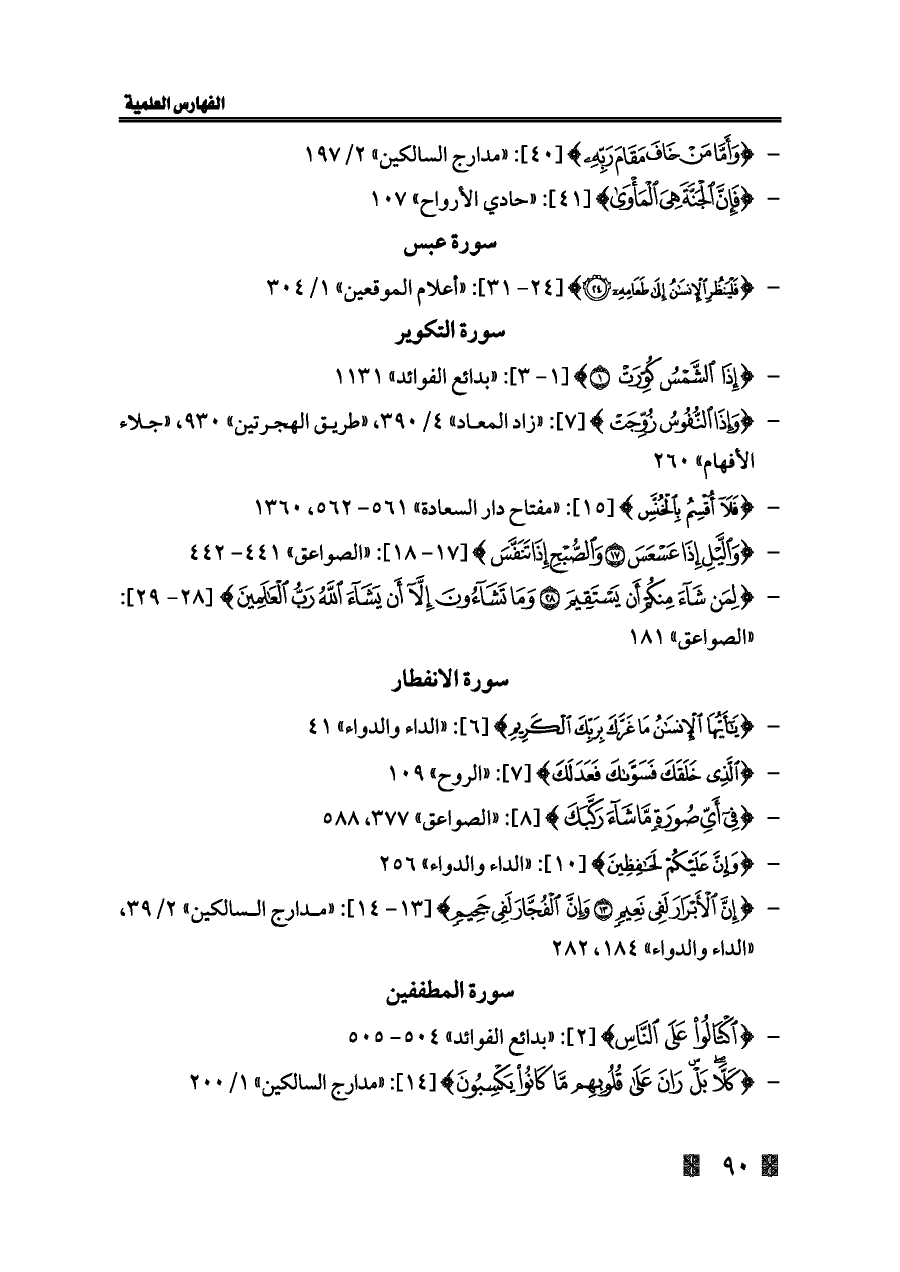 الفهارس العلمية
- ﴿وَأَمَّا مَنْ خَافَ مَقَامَ رَبِّهِۦ﴾ [٤٠]: «مدارج السالكين» ٢/ ١٩٧
- ﴿فَإِنَّ ٱلْجَنَّةَ هِىَ ٱلْمَأْوَىٰ﴾ [٤١]: «حادي الأرواح» ١٠٧
سورة عبس
- ﴿فَلْيَنظُرِ ٱلْإِنسَٰنُ إِلَىٰ طَعَامِهِۦٓ ۝٢٤﴾ [٢٤- ٣١]: «أعلام الموقعين» ١/ ٣٠٤
سورة التكوير
- ﴿إِذَا ٱلشَّمْسُ كُوِّرَتْ ۝١﴾ [١- ٣]: «بدائع الفوائد» ١١٣١
- ﴿وَإِذَا ٱلنُّفُوسُ زُوِّجَتْ ﴾ [٧]: «زاد المعاد» ٤/ ٣٩٠، «طريق الهجرتين» ٩٣٠، «جلاء
الأفهام» ٢٦٠
- ﴿فَلَآ أُقْسِمُ بِٱلْخُنَّسِ ﴾ [١٥]: «مفتاح دار السعادة» ٥٦١- ٥٦٢، ١٣٦٠
- ﴿وَٱلَّيْلِ إِذَا عَسْعَسَ ۝١٧ وَٱلصُّبْحِ إِذَا تَنَفَّسَ ﴾ [١٧- ١٨]: «الصواعق» ٤٤١- ٤٤٢
- ﴿لِمَن شَآءَ مِنكُمْ أَن يَسْتَقِيمَ ۝٢٨ وَمَا تَشَآءُونَ إِلَّآ أَن يَشَآءَ ٱللَّهُ رَبُّ ٱلْعَٰلَمِينَ﴾ [٢٨- ٢٩]:
«الصواعق» ١٨١
سورة الانفطار
- ﴿يَٰٓأَيُّهَا ٱلْإِنسَٰنُ مَا غَرَّكَ بِرَبِّكَ ٱلْكَرِيمِ﴾ [٦]: «الداء والدواء» ٤١
- ﴿ٱلَّذِى خَلَقَكَ فَسَوَّىٰكَ فَعَدَلَكَ﴾ [٧]: «الروح» ١٠٩
- ﴿فِىٓ أَىِّ صُورَةٍ مَّا شَآءَ رَكَّبَكَ ﴾ [٨]: «الصواعق» ٣٧٧، ٥٨٨
- ﴿وَإِنَّ عَلَيْكُمْ لَحَٰفِظِينَ﴾ [١٠]: «الداء والدواء» ٢٥٦
- ﴿إِنَّ ٱلْأَبْرَارَ لَفِى نَعِيمٍ ۝١٣ وَإِنَّ ٱلْفُجَّارَ لَفِى جَحِيمٍ﴾ [١٣- ١٤]: «مدارج السالكين» ٢/ ٣٩،
«الداء والدواء» ١٨٤، ٢٨٢
سورة المطففين
- ﴿ٱكْتَالُوا۟ عَلَى ٱلنَّاسِ﴾ [٢]: «بدائع الفوائد» ٥٠٤- ٥٠٥
- ﴿كَلَّا ۖ بَلْ ۜ رَانَ عَلَىٰ قُلُوبِهِم مَّا كَانُوا۟ يَكْسِبُونَ﴾ [١٤]: «مدارج السالكين» ١/ ٢٠٠
٩٠